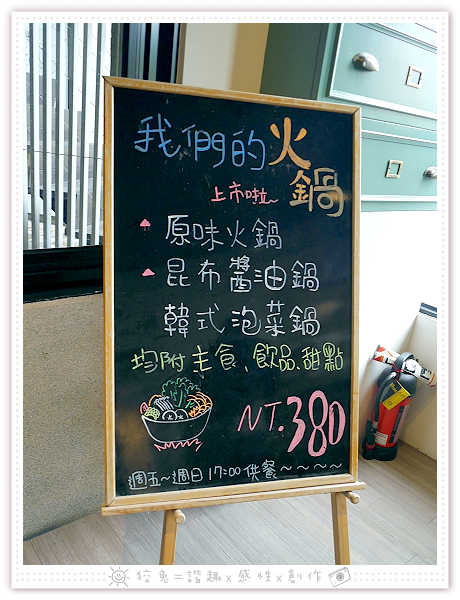 我們的火鍋
上市啦~
原味火鍋
昆布醬油鍋
韓式泡菜鍋
均附主食、飲品、甜點
NT.380
週五~週日 17:00 供餐~~~~
狡兔=諧趣x感性x創作